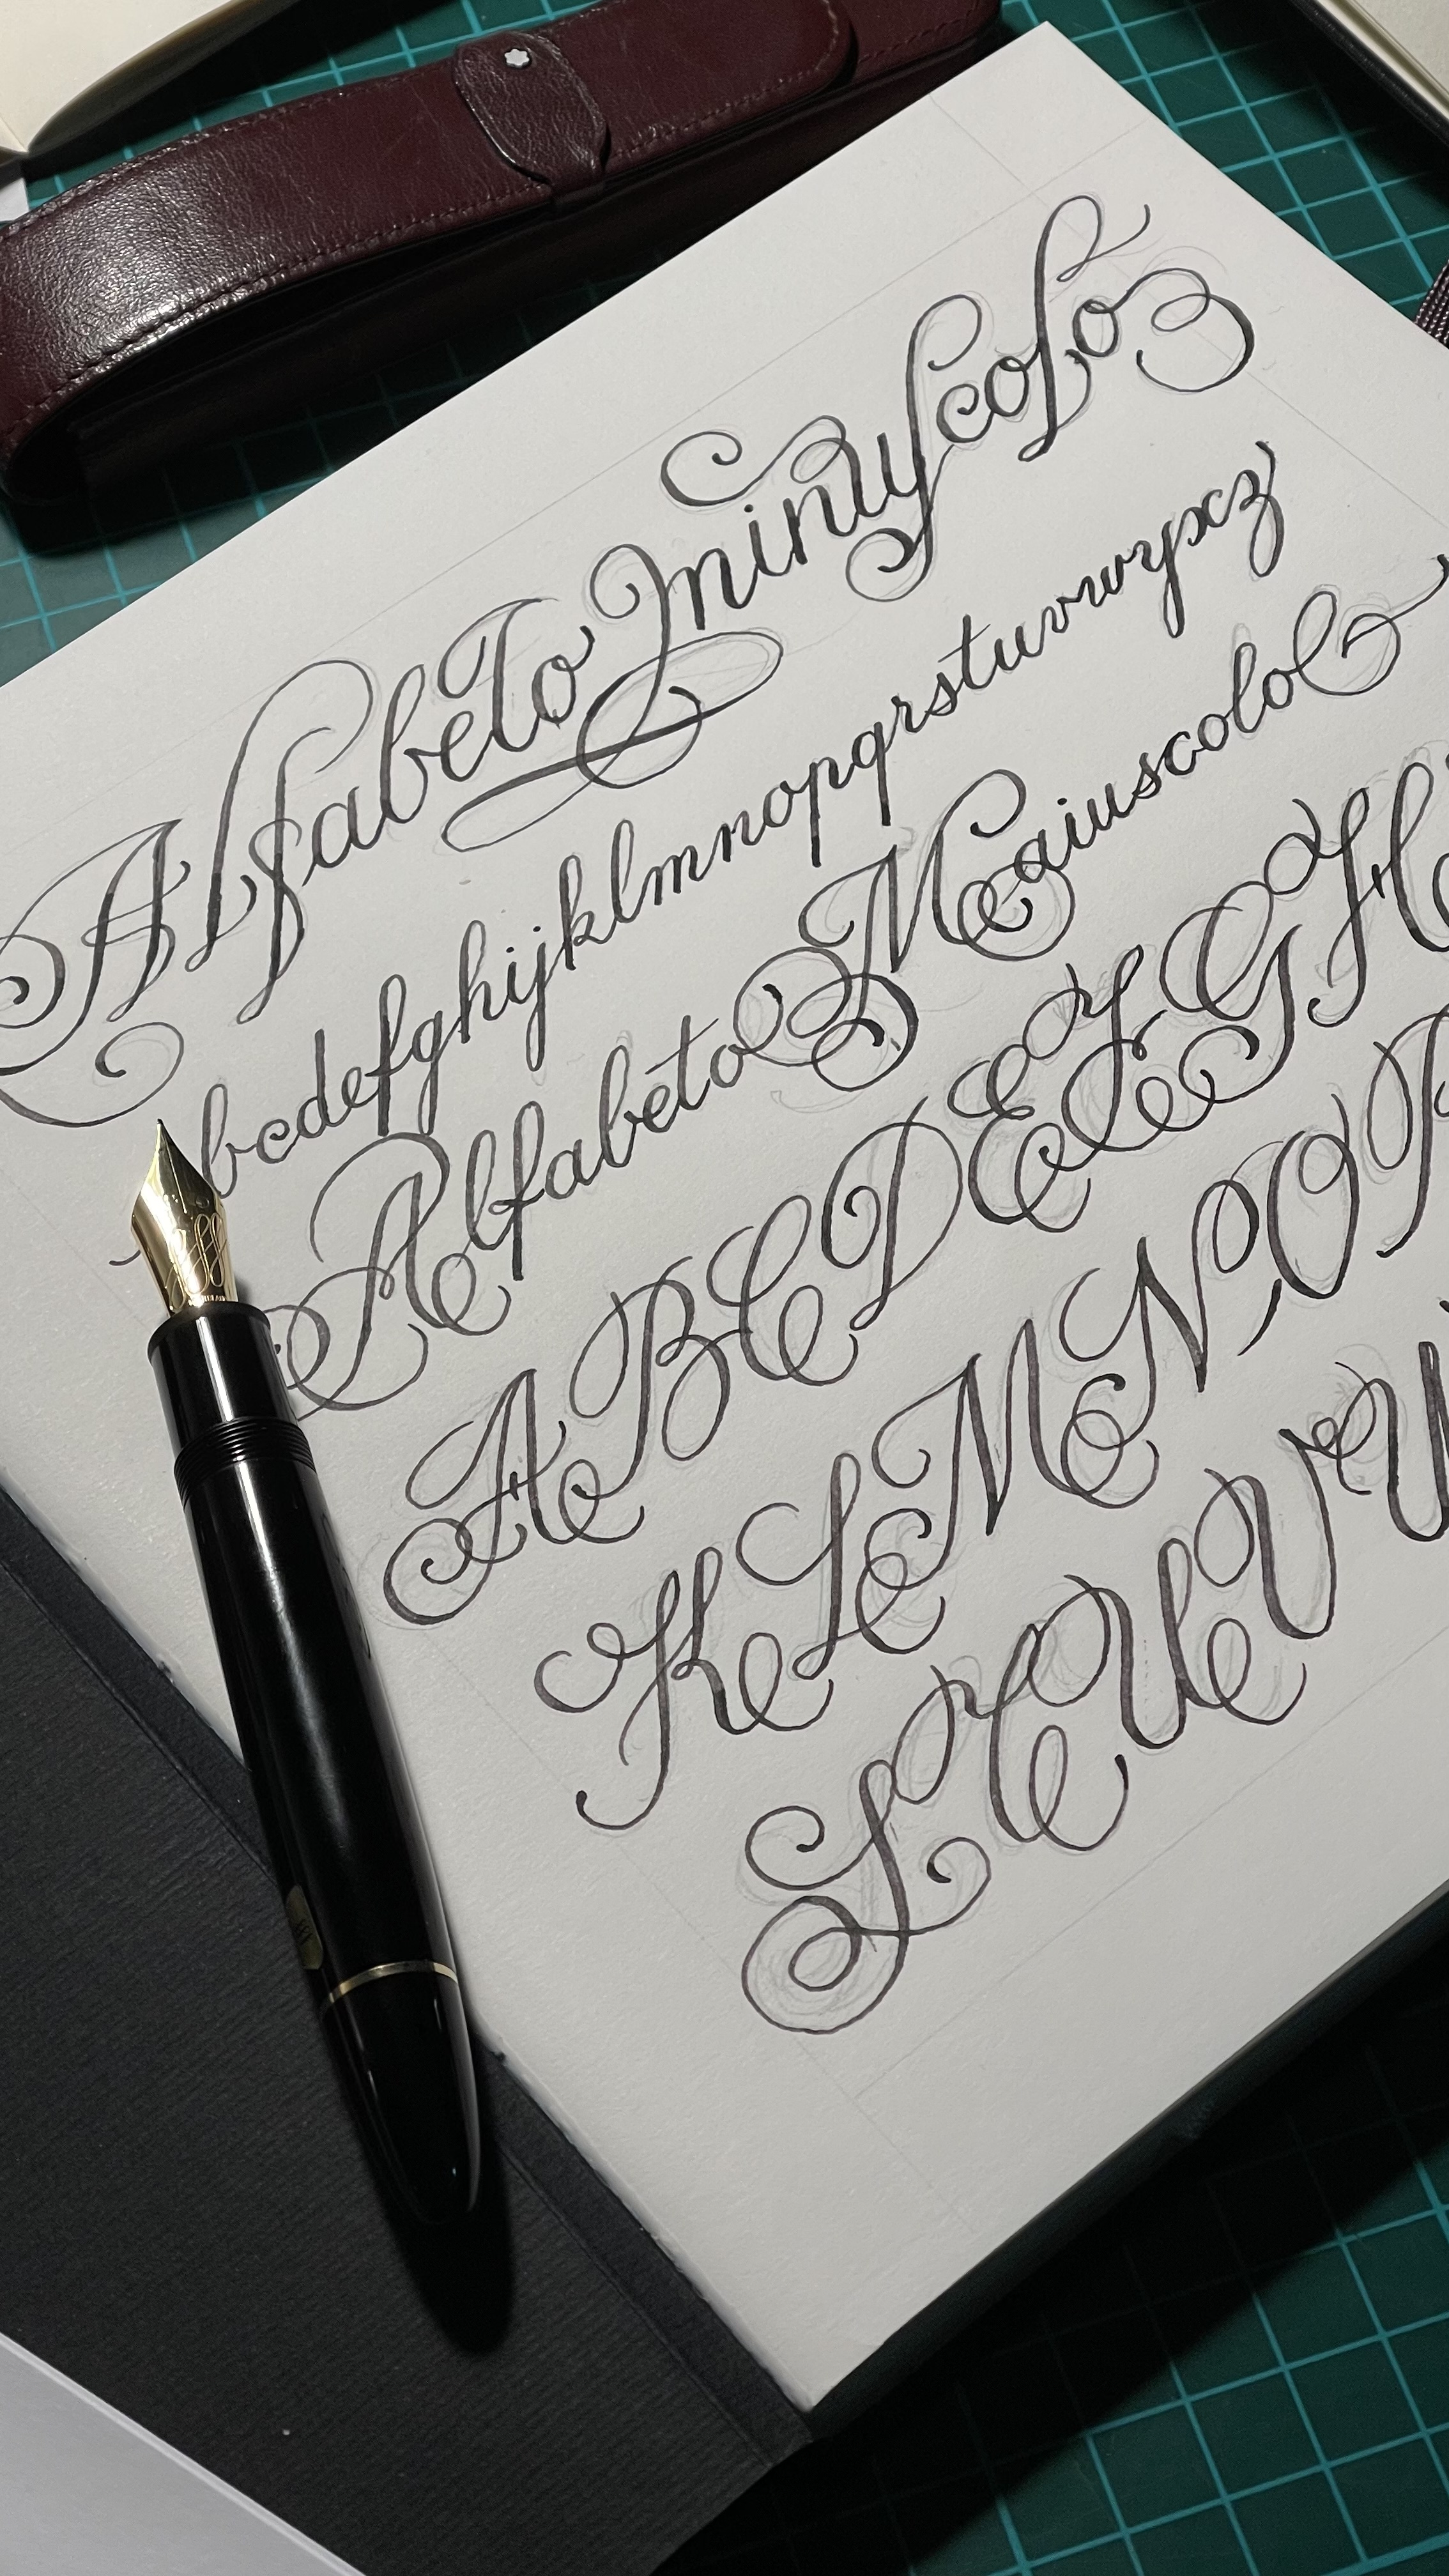 Alfabeto Minuscolo
bcdefghijklmnopqrstuvwyxz
Alfabeto Maiuscolo
A B C D E F G H
K L M N O P
S T U V W